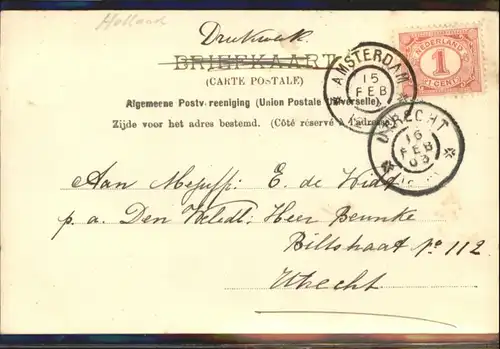 Holland
Drukwerk
BRIEFKAART
(CARTE POSTALE)
Algemeene Postvereeniging (Union Postale Universelle)
Zijde voor het adres bestemd. (Côté réservé à l'adresse)
NEDERLAND
1
CENT
AMSTERDAM
15
FEB
UTRECHT
16
FEB
03
Aan Mejuff: E. de Widt
p. a. Den WelEdl: Heer Beunke
Biltstraat No 112
Utrecht